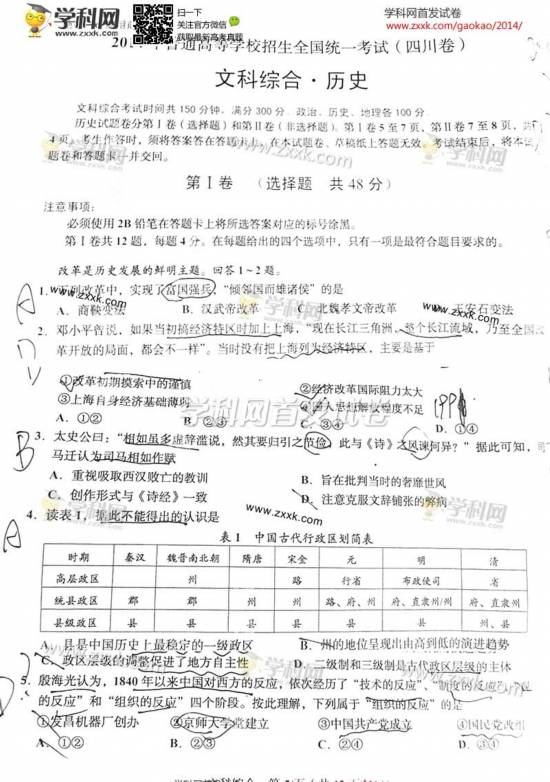 学科网
www.zxxk.com
扫一扫
关注官方微信
获取最新高考资讯
学科网首发试卷
www.zxxk.com/gaokao/2014/
普通高等学校招生全国统一考试(四川卷)
文科综合·历史
文科综合考试时间共150分钟,满分300分。政治、历史、地理各100分
历史试题卷分第Ⅰ卷(选择题)和第Ⅱ卷(非选择题)。第Ⅰ卷5至7页,第Ⅱ卷7至8页,
4页。考生作答时,须将答案答在答题卡上,在本试题卷、草稿纸上答题无效。考试结束后,将本试
题卷和答题卡一并交回。
第Ⅰ卷 (选择题 共48分)
注意事项:
必须使用2B铅笔在答题卡上将所选答案对应的标号涂黑。
第Ⅰ卷共12题,每题4分。在每题给出的四个选项中,只有一项是最符合题目要求的。
改革是历史发展的鲜明主题。回答1~2题。
A
1.下列改革中,实现了富国强兵,“倾邻国而雄诸侯”的是
A.商鞅变法 B.汉武帝改革 C.北魏孝文帝改革 D.王安石变法
2.邓小平曾说,如果当初搞经济特区时加上上海,“现在长江三角洲,整个长江流域,乃至全国改
革开放的局面,都会不一样”。当时没有把上海列为经济特区,主要是基于
①改革初期摸索中的谨慎 ②经济改革国际阻力太大
③上海自身经济基础薄弱 ④国人思想解放程度不足
A.①② B.②③ C.③④ D.①④
学科网首发试卷
B
3.太史公曰:“相如虽多虚辞滥说,然其要归引之节俭,此与《诗》之风谏何异?”据此可知,司
马迁认为司马相如作赋
A.重视吸取西汉败亡的教训 B.旨在批判当时的奢靡世风
C.创作形式与《诗经》一致 D.注意克服文辞铺张的弊病
4.读表1,据此不能得出的认识是
表1 中国古代行政区划简表
时期 秦汉 魏晋南北朝 隋唐 宋金 元 明 清
高层政区 州 路 行省 布政使司 省
统县政区 郡 郡 州 州 路、府、州 府、直隶州/州 府、直隶州
县级政区 县 县 县 县 县 县 县
A.县是中国历史上最稳定的一级政区 B.州的地位呈现出由高到低的演进趋势
C.政区层级的调整促进了地方自主性 D.二级制和三级制是古代政区层级的主体
5.殷海光认为,1840年以来中国对西方的反应,依次经历了“技术的反应”、“制度的反应”、
的反应”和“组织的反应”四个阶段。按此理解,下列属于“组织的反应”的是
①发昌机器厂创办 ②京师大学堂建立 ③中国共产党成立 ④国民党改组
A.①② B.②③ C.③④ D.①④